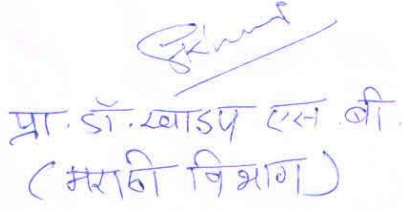 प्रा. डॉ. खाडप एस. बी.
(मराठी विभाग)